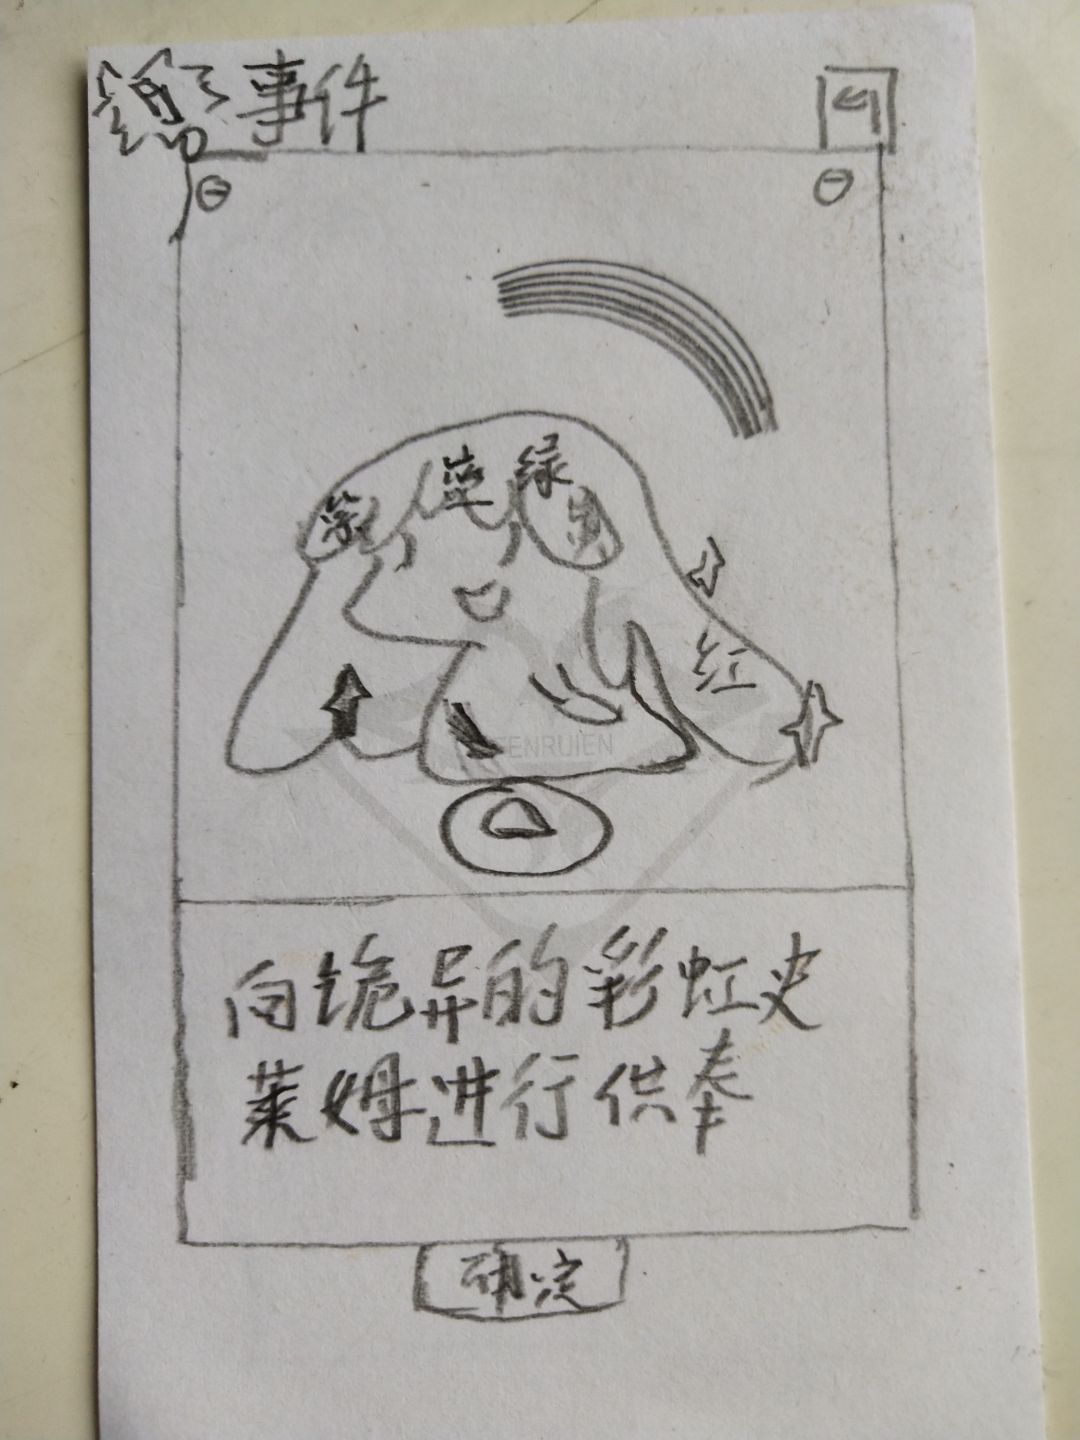 事件
蓝 绿
紫 黄
红
TENRUIEN
向诡异的彩虹史
莱姆进行供奉
确定